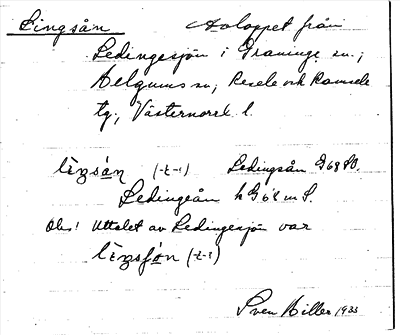 Lingsån Avloppet från
Ledingesjön i Graninge sn.;
Helgums sn, Resele och Ramsele
tg., Västernorrl. l.
(-t-1) Ledingsån G68SO.
Ledingeån h G68mS.
Obs! Uttalet av Ledingesjön var
(-t-1)
Sven Hiller 1933